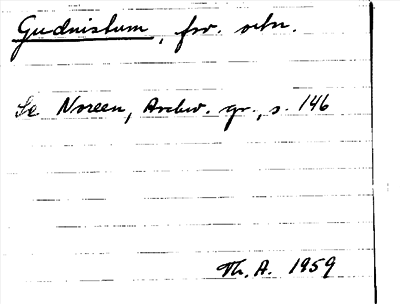 Gudnistum, fsv. ortn.
Se Noreen, Archiv. gr., s. 146
Th. A. 1959